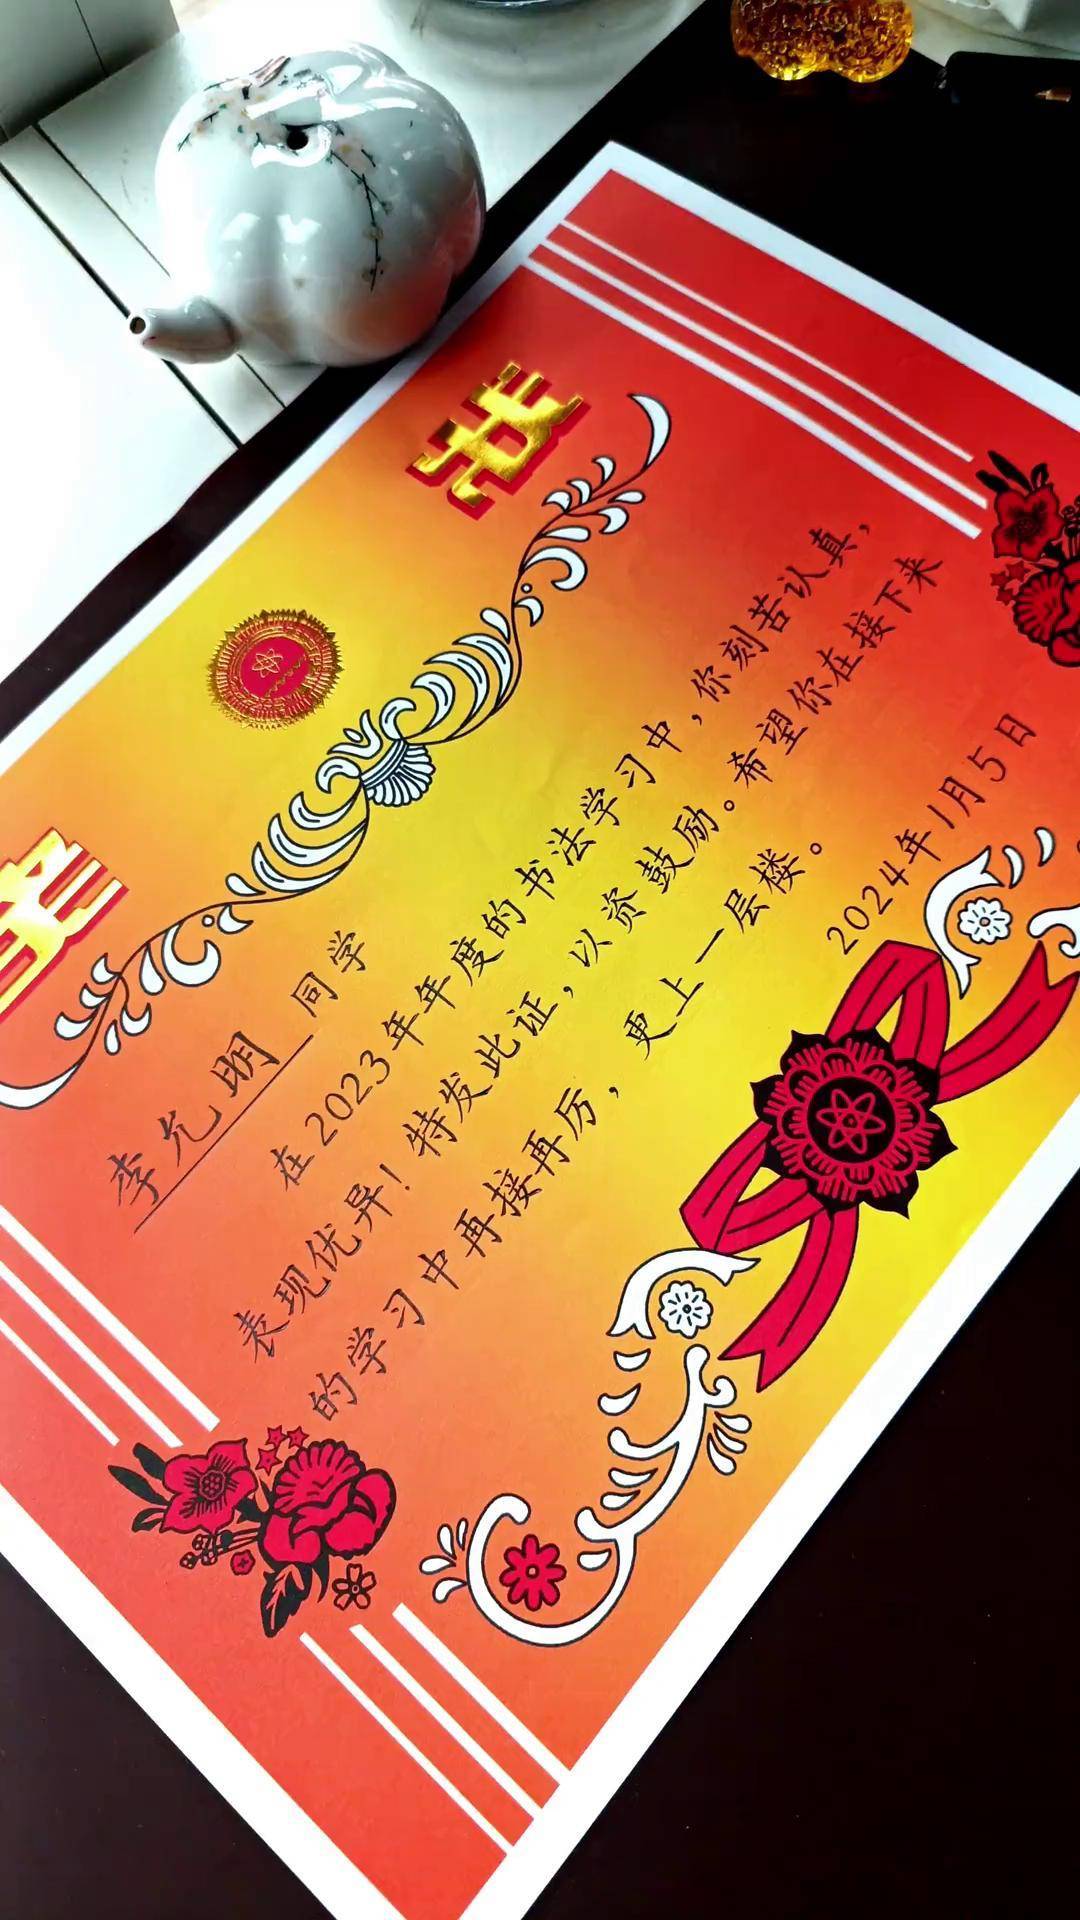 奖状
李允明 同学
在2023年年度的书法学习中，你刻苦认真，
表现优异！特发此证，以资鼓励。希望你在接下来
的学习中再接再厉，更上一层楼。
2024年1月5日